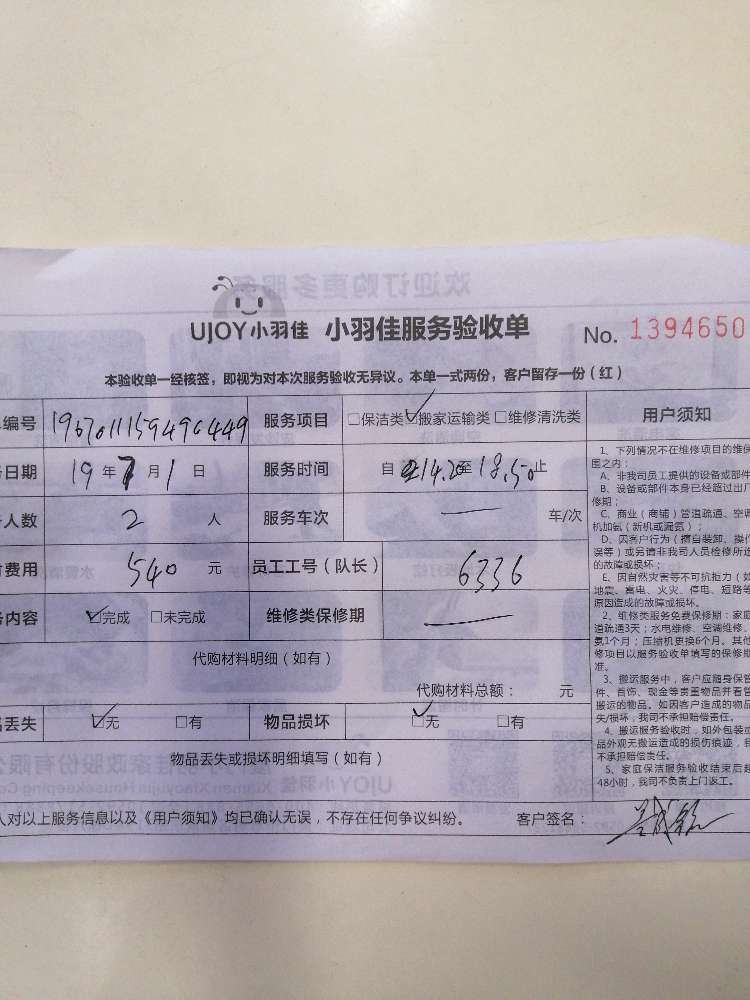 UJOY小羽佳 小羽佳服务验收单 No. 1394650
本验收单一经核签，即视为对本次服务验收无异议。本单一式两份，客户留存一份（红）
编号 服务项目 □保洁类 ☑搬家运输类 □维修清洗类 用户须知
日期 19年7月1日 服务时间 自 14.20至18.50止
人数 2 人 服务车次 — 车/次
费用 540 元 员工工号（队长） 6336
内容 ☑完成 □未完成 维修类保修期 —
代购材料明细（如有）
代购材料总额： 元
丢失 ☑无 □有 物品损坏 ☑无 □有
物品丢失或损坏明细填写（如有）
人对以上服务信息以及《用户须知》均已确认无误，不存在任何争议纠纷。 客户签名：
1、下列情况不在维修项目的维保
围之内：
A、非我司员工提供的设备或部件
B、设备或部件本身已经超过出厂
修期；
C、商业（商铺）管道疏通、空调
机加氨（新机或漏氨）；
D、因客户行为（擅自装卸、操作
误等）或另请非我司人员检修所造
的故障或损坏；
E、因自然灾害等不可抗拒力（如
地震、雷电、火灾、停电、短路等
原因造成的故障或损坏。
2、维修类服务免费保修期：家庭
道疏通3天；水电维修、空调维修、
氨1个月；压缩机更换6个月。其他
修项目以服务验收单填写的保修期
准。
3、搬运服务中，客户应随身保管
件、首饰、现金等贵重物品并看管
搬运的物品。如因客户造成的物品
失/损坏，我司不承担赔偿责任。
4、搬运服务验收时，如外包装或
品外观无搬运造成的损伤痕迹，我
不承担赔偿责任。
5、家庭保洁服务验收结束后超
48小时，我司不负责上门返工。